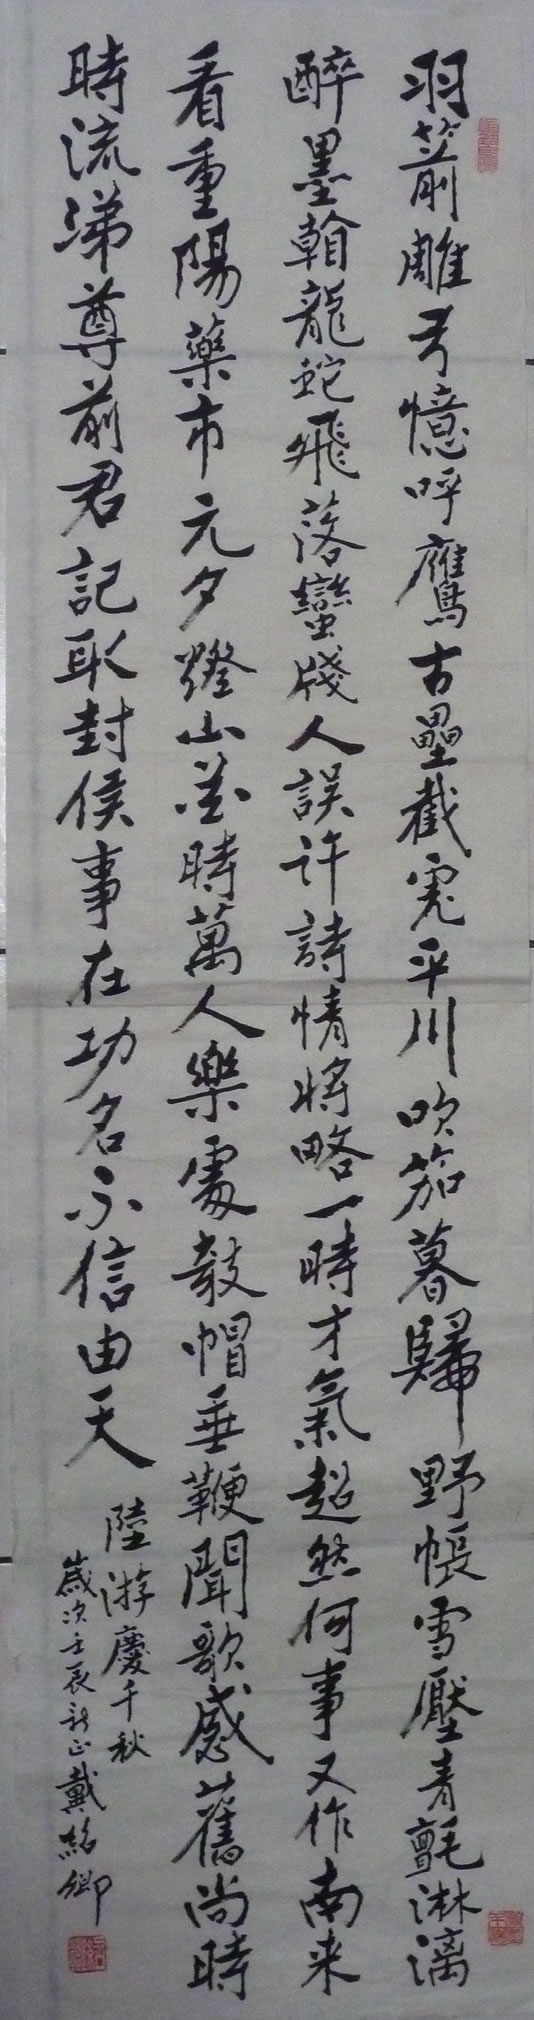 羽箭雕弓憶呼鷹古壘截虎平川吹笳暮歸野帳雪壓青氈淋漓
醉墨翰龍蛇飛落蠻牋人誤許詩情將略一時才氣超然何事又作南来
看重陽藥市元夕燈山花時萬人樂處敧帽垂鞭聞歌感舊尚時
時流涕尊前君記取封侯事在功名不信由天
陸游慶千秋
歲次壬辰新正戴紹卿